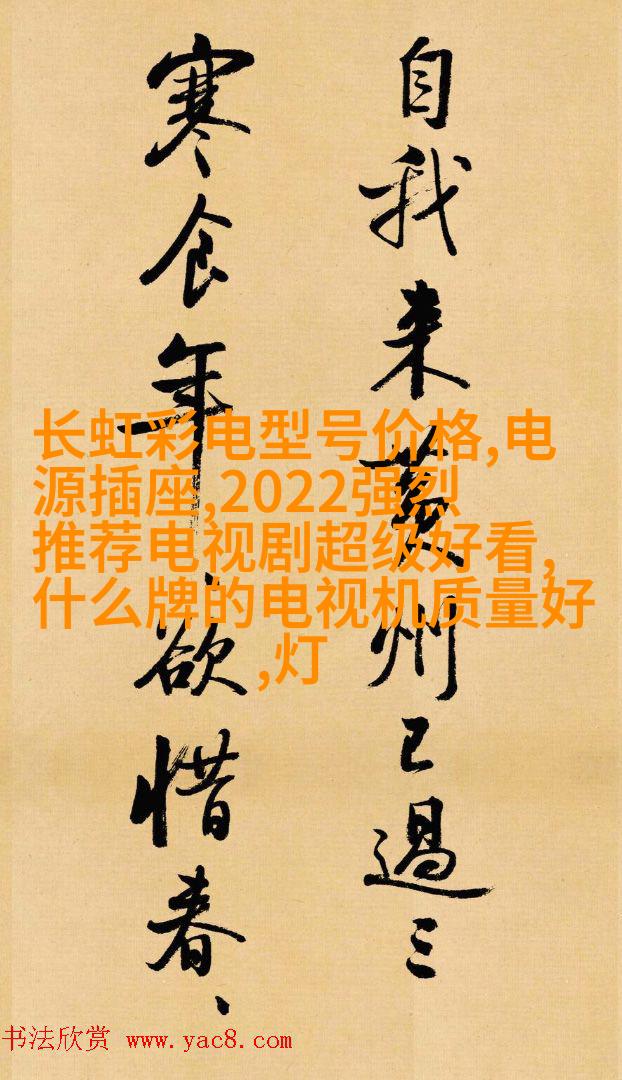 自我来黄州已過三
寒食年、欲惜春、
长虹彩电型号价格,电
源插座,2022强烈
推荐电视剧超级好看,
什么牌的电视机质量好
,灯
书法欣赏 www.yac8.com